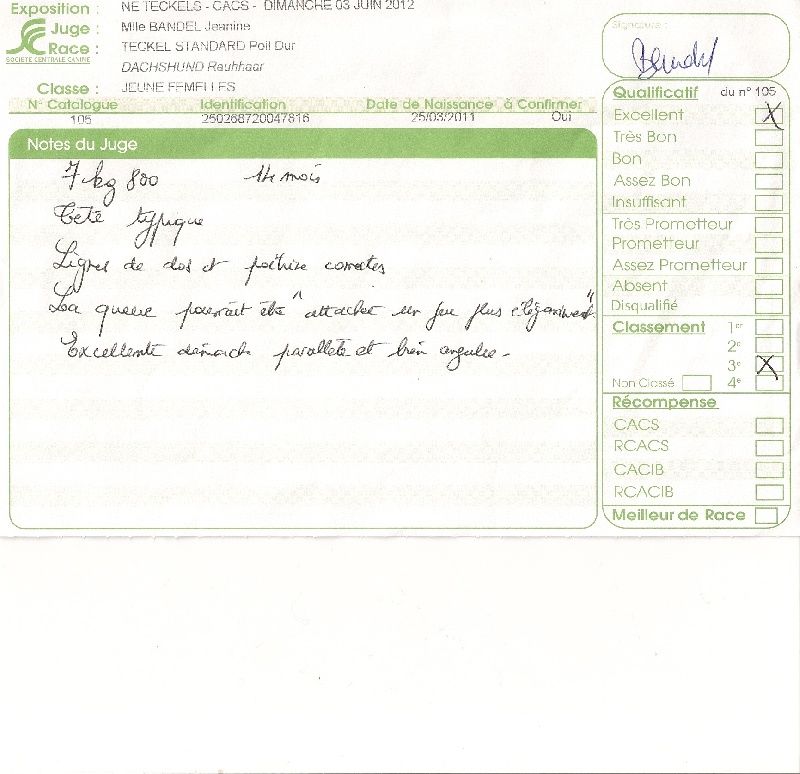 Exposition : NE TECKELS - CACS - DIMANCHE 03 JUIN 2012
Juge : Mlle BANDEL Jeanine
Race : TECKEL STANDARD Poil Dur
SOCIÉTÉ CENTRALE CANINE
DACHSHUND Rauhhaar
Classe : JEUNE FEMELLES
N° Catalogue Identification Date de Naissance à Confirmer
105 250268720047816 25/03/2011 Oui
Notes du Juge
7 kg 800 14 mois
Tête typique
Lignes de dos et poitrine correctes
La queue pourrait être "attachée un peu plus élégamment"
Excellente démarche parallèle et bien angulée -
Signature :
Qualificatif du n° 105
Excellent X
Très Bon
Bon
Assez Bon
Insuffisant
Très Prometteur
Prometteur
Assez Prometteur
Absent
Disqualifié
Classement 1er
2e
3e X
Non Classé 4e
Récompense
CACS
RCACS
CACIB
RCACIB
Meilleur de Race